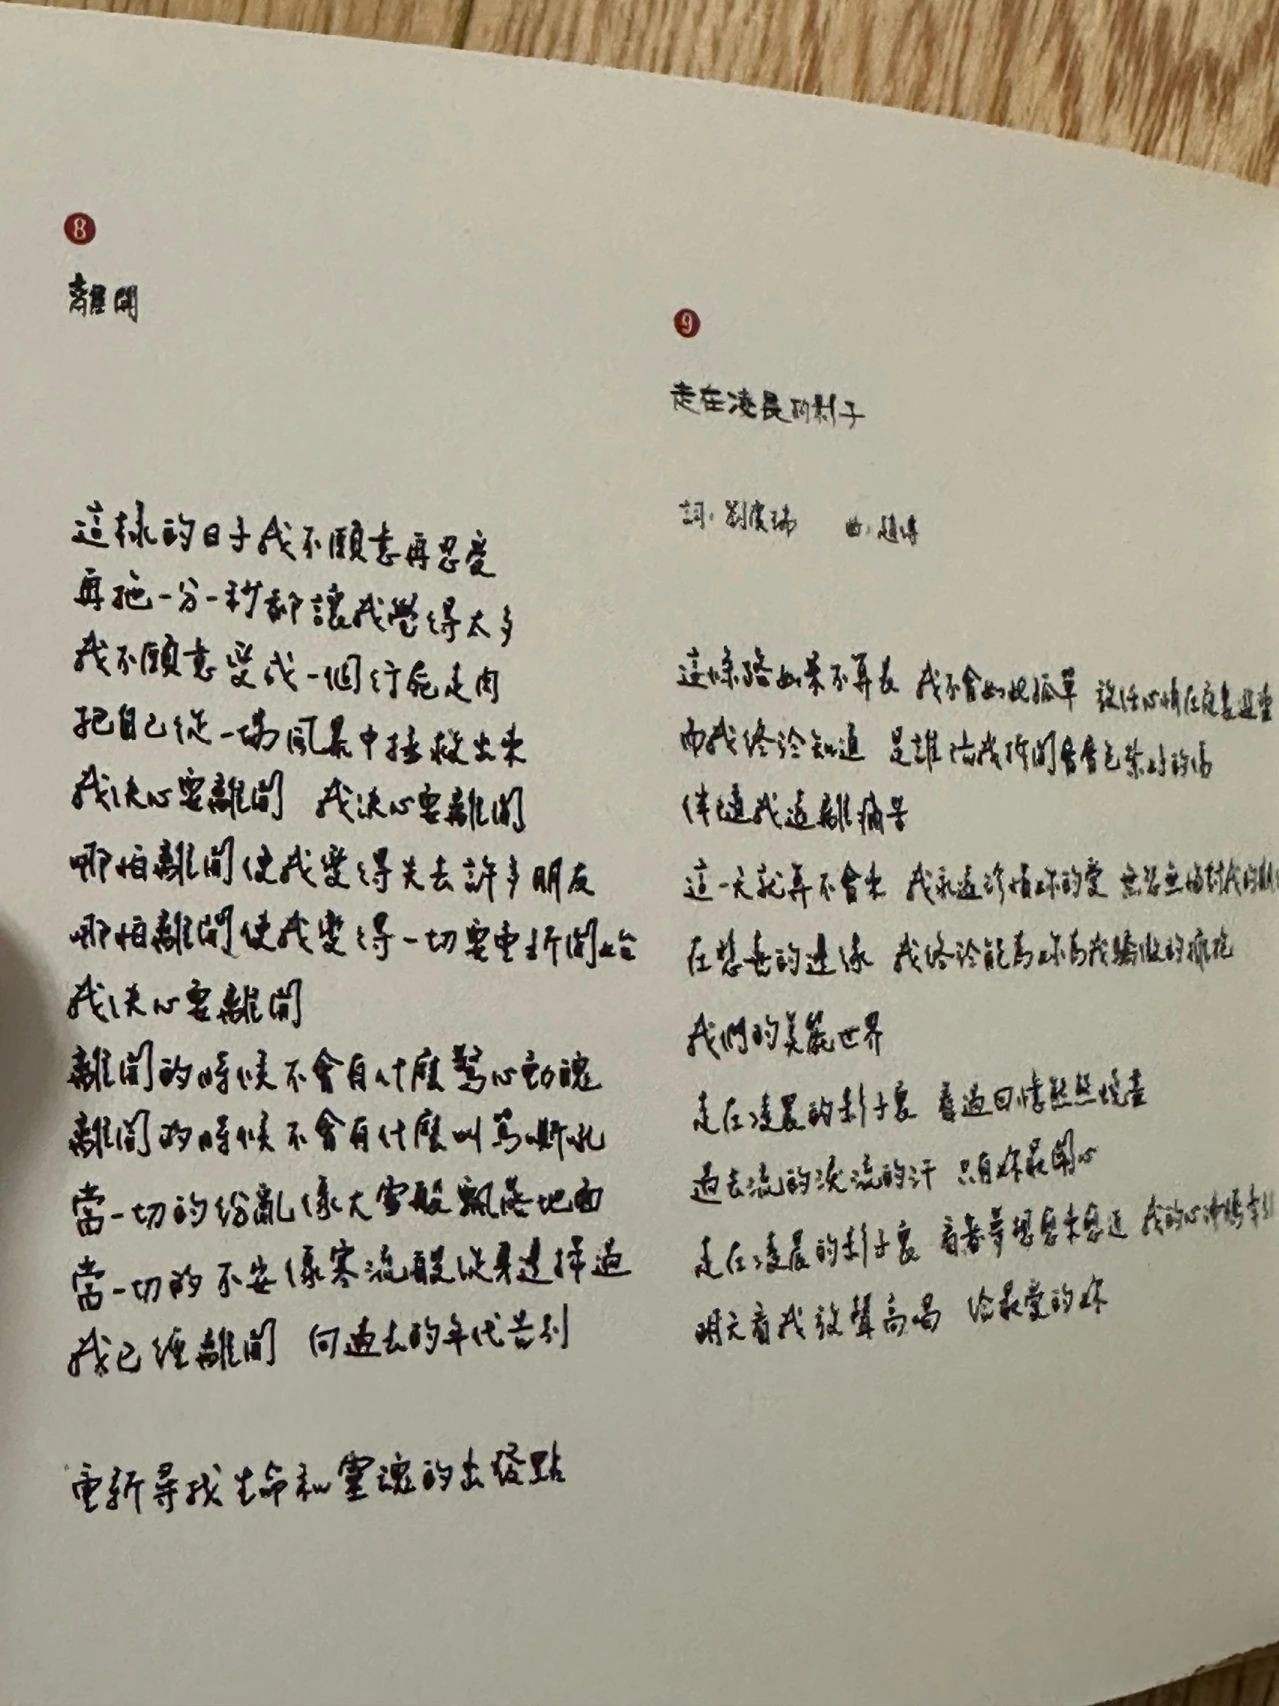 8
離開
這樣的日子我不願意再忍受
再拖一分一秒都讓我覺得太多
我不願意變成一個行屍走肉
把自己從一場風暴中拯救出來
我決心要離開 我決心要離開
哪怕離開使我變得失去許多朋友
哪怕離開使我變得一切要重新開始
我決心要離開
離開的時候不會有什麼驚心動魄
離開的時候不會有什麼叫罵嘶吼
當一切的紛亂像大雪般飄落地面
當一切的不安像寒流般從身邊擇過
我已經離開 向過去的年代告別
重新尋找生命和靈魂的出發點
9
走在凌晨的影子
詞.劉虞瑞 曲.趙傳
這條路如果不再長 我不會如此孤單 放任心情在夜裏
而我終於知道 是誰
伴隨我遠離痛苦
這一天就再不會來 我永遠珍惜妳的愛
在悲喜的邊緣 我終於能為妳
我們的美麗世界
走在凌晨的影子裏 看過回憶熊熊燒盡
過去流的淚流的汗 只有妳最開心
走在凌晨的影子裏 看著夢想愈來愈近 我的心
明天看我放聲高唱 給最愛的妳